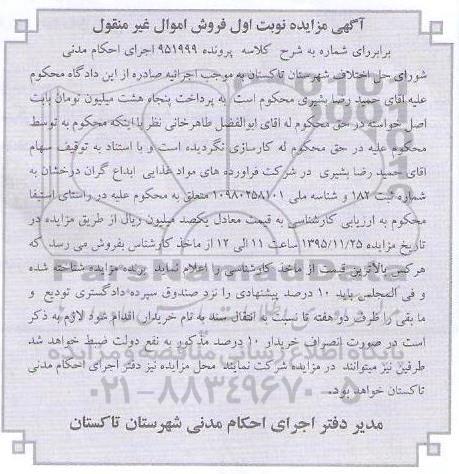 آگهی مزایده نوبت اول فروش اموال غیر منقول
برابررای شماره به شرح کلاسه پرونده ۹۵۱۹۹۹ اجرای احکام مدنی
شورای حل اختلاف شهرستان تاکستان به موجب اجرائیه صادره از این دادگاه محکوم
علیه آقای حمید رضا بشیری محکوم است به پرداخت پنجاه هشت میلیون تومان بابت
اصل خواسته در حق محکوم له اقای ابوالفضل طاهرخانی نظر باینکه محکوم به توسط
محکوم علیه در حق محکوم له کارسازی نگردیده است و با استناد به توقیف سهام
اقای حمید رضا بشیری در شرکت فراورده های مواد غذایی ابداع گران درخشان به
شماره ثبت ۱۸۲ و شناسه ملی ۱۰۹۸۰۲۵۸۱۰۱ متعلق به محکوم علیه در راستای استیفا
محکوم به ارزیابی کارشناسی به قیمت معادل یکصد میلیون ریال از طریق مزایده در
تاریخ مزایده ۱۳۹۵/۱۱/۲۵ ساعت ۱۱ الی ۱۲ از ماخذ کارشناس بفروش می رسد که
هرکس بالاترین قیمت از ماخذ کارشناسی را اعلام نماید برنده مزایده شناخته شده
و فی المجلس باید ۱۰ درصد پیشنهادی را نزد صندوق سپرده دادگستری تودیع و
ما بقی را ظرف دو هفته تا نسبت به انتقال سند به نام خریدار اقدام شود لازم به ذکر
است در صورت انصراف خریدار ۱۰ درصد مذکور به نفع دولت ضبط خواهد شد
طرفین نیز میتوانند در مزایده شرکت نمایند محل مزایده نیز دفتر اجرای احکام مدنی
تاکستان خواهد بود.
پایگاه اطلاع رسانی مناقصه و مزایده
ParsNamadData
۰۲۱-۸۸۳۴۹۶۷۰-۵
مدیر دفتر اجرای احکام مدنی شهرستان تاکستان